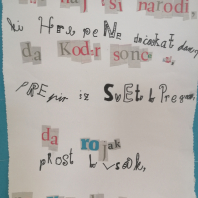 naj vsi narodi,
ki HrepeNE dočakat dan,
da Koder sonce
PREpir iz SvEta b Pregnan,
da rojak
pROST b vsak,